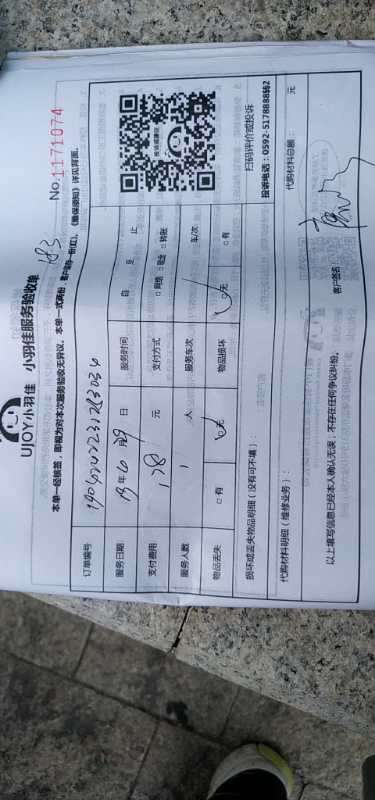 UJOY小羽佳 小羽佳服务验收单
No.1171074
本单一经核签，即视为对本次服务验收无异议，本单一式两份，客户联有一份(红)，《撤保须知》详见背面。
订单编号
服务日期 19 年 6 月 29 日 服务时间 自 至 止
支付费用 元 支付方式 □网络 □现金 □转账
服务人数 1 人 服务车次 车/次
物品丢失 □有 □无 物品损坏 □无 □有
损坏或丢失物品明细（没有可不填）：
扫码评价或投诉
投诉电话：0592-5178888转2
代购材料明细（维修业务）：
代购材料总额： 元
以上填写信息已经本人确认无误，不存在任何争议纠纷。
客户签名